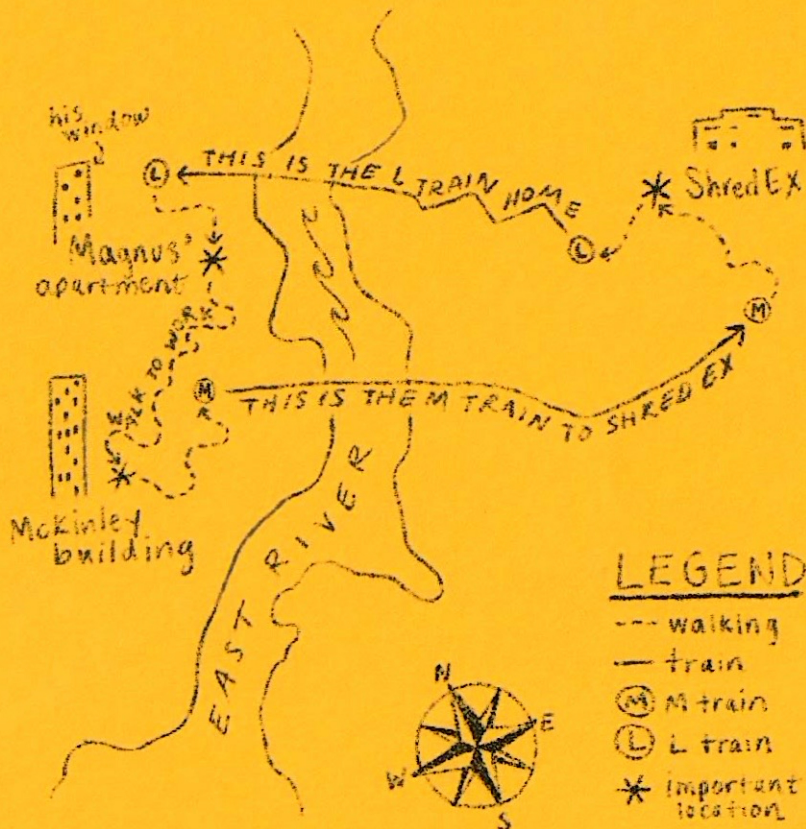 his
window
L
THIS IS THE L TRAIN HOME
L
Shred EX
Magnus'
apartment
M
WALK TO WORK
M
THIS IS THE M TRAIN TO SHRED EX
McKinley
building
EAST RIVER
LEGEND
--- walking
— train
M M train
L L train
* important
location
N
E
W
S